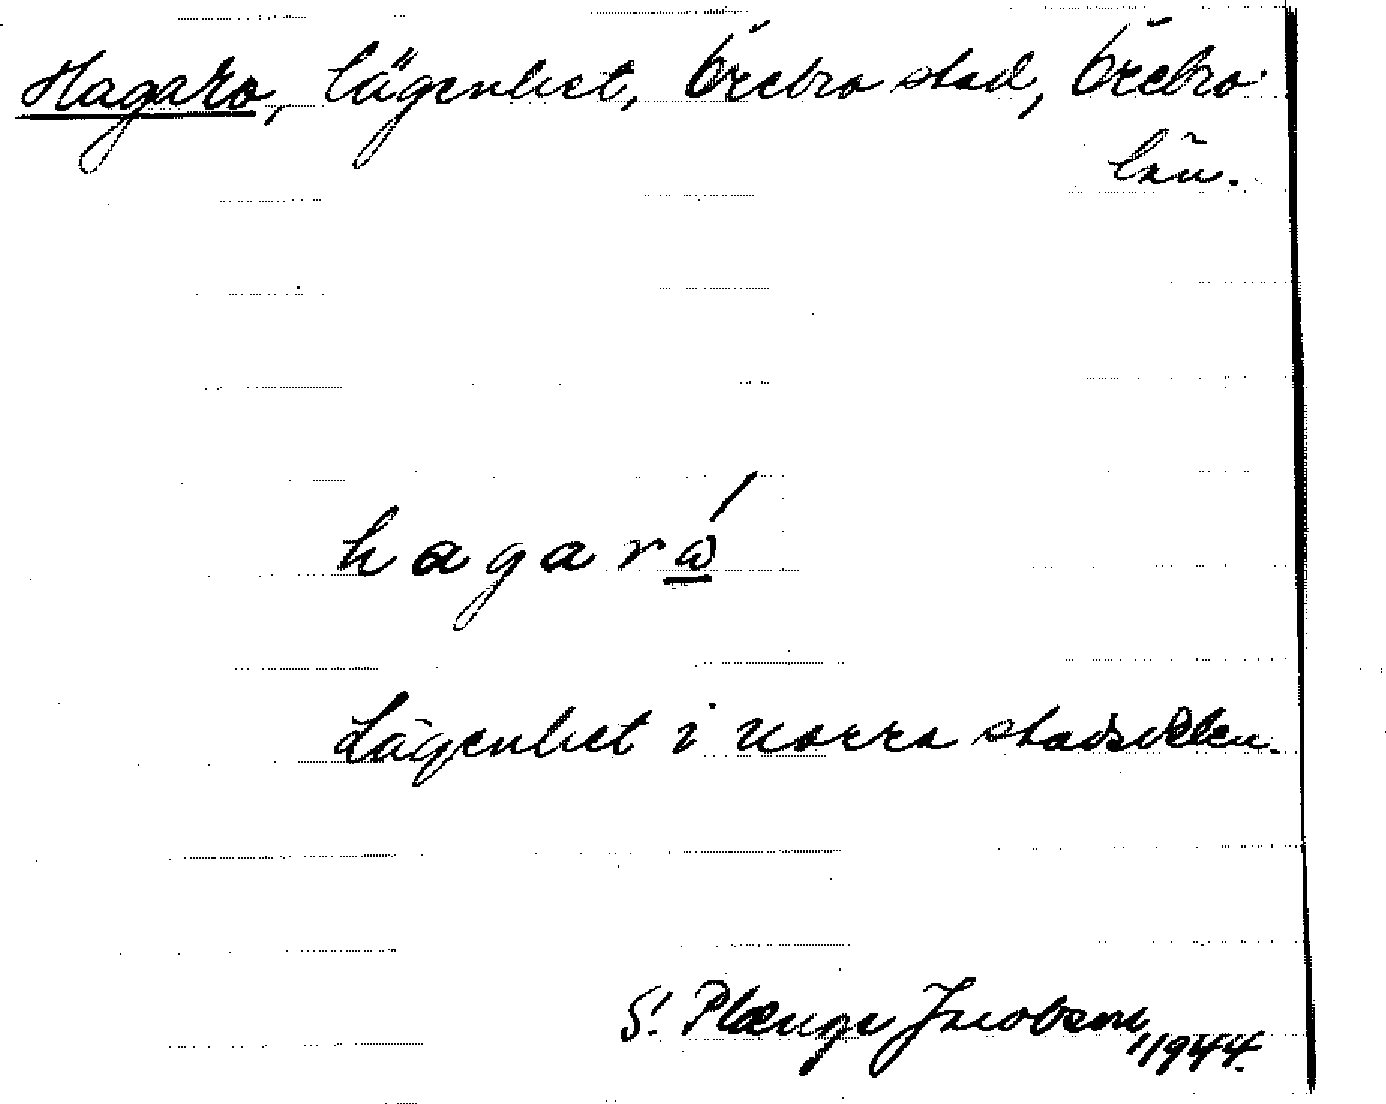 Hagaro, lägenhet, Örebro stad, Örebro
län.
hagarώ
Lägenhet i norra stadsdelen.
S. Plænge Jacobson, 1944.